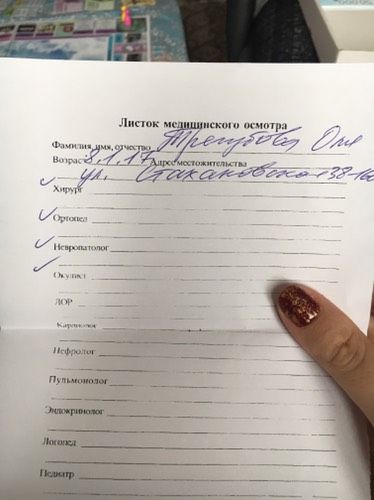 Листок медицинского осмотра
Фамилия, имя, отчество Трегубова Оля
Возраст 8.1.17 Адрес местожительства
ул. Стахановская 138-160
Хирург
Ортопед
Невропатолог
Окулист
ЛОР
Кардиолог
Нефролог
Пульмонолог
Эндокринолог
Логопед
Педиатр